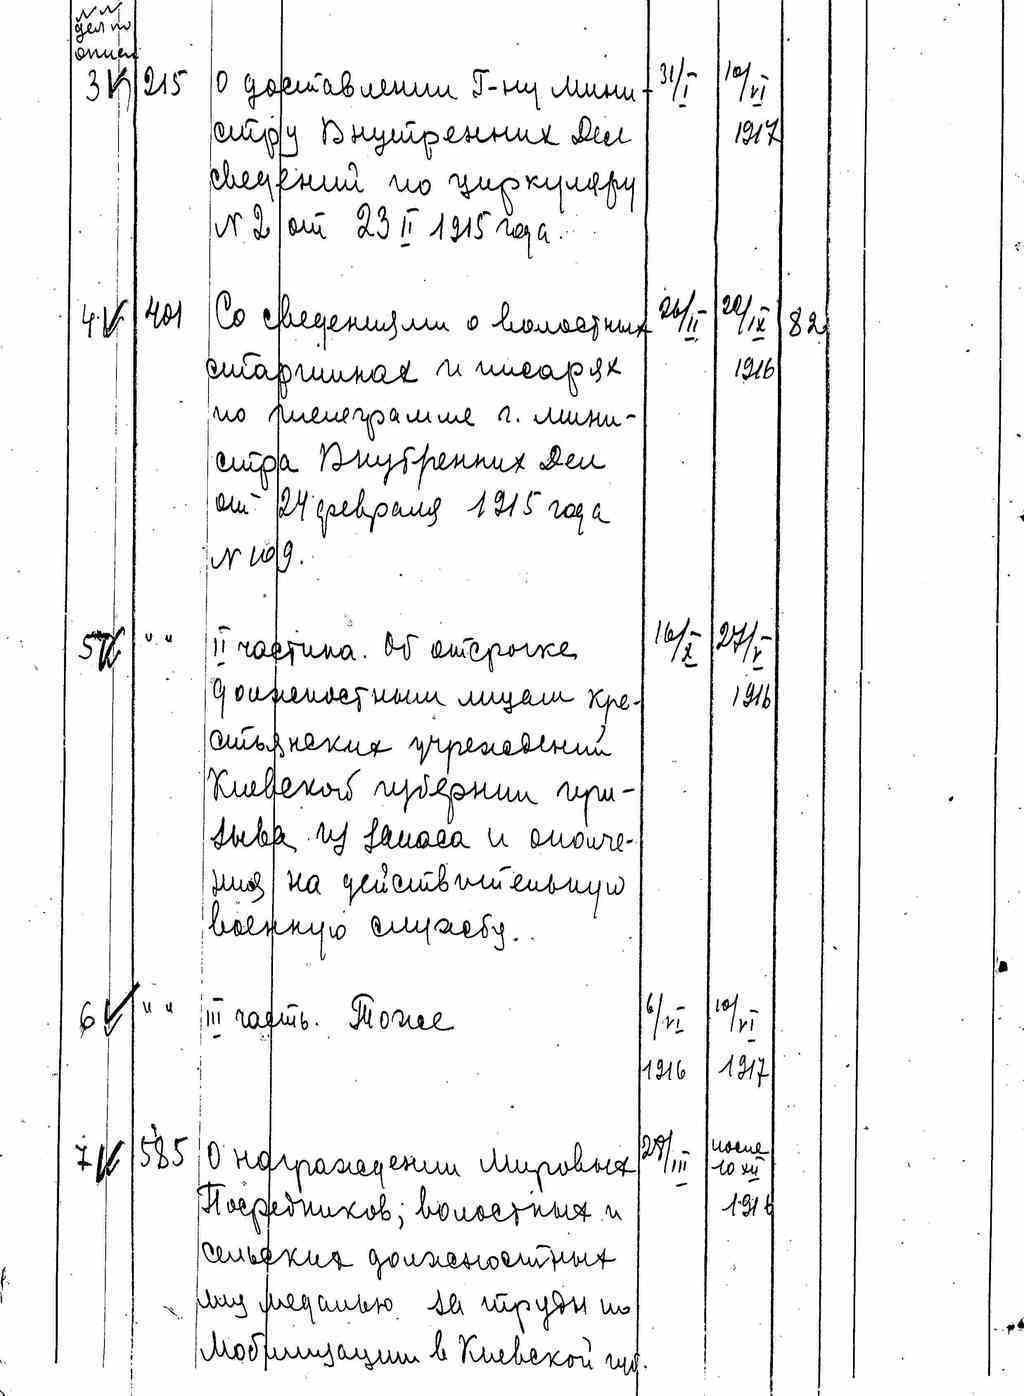 №№
дел по
описи
3 215 О доставлении Г-ну Мини- 31/I 10/VI
стру Внутренних Дел 1917
сведений по циркуляру
N 2 от 23 II 1915 года.
4 401 Со сведениями о волостных 26/II 20/IX 82
старшинах и писарях 1916
по телеграмме г. мини-
стра Внутренних Дел
от 24 февраля 1915 года
N 109.
5 " " II частина. Об отсрочке 16/X 27/V
должностным лицам кре- 1916
стьянских учреждений
Киевской губернии при-
зыва из запаса и ополче-
ния на действительную
военную службу.
6 " " III часть. Тоже 6/VI 10/VI
1916 1917
7 585 О награждении Мировых 28/III после
Посредников, волостных и 10 XII
сельских должностных 1916
лиц медалью за труды по
Мобилизации в Киевской губ.